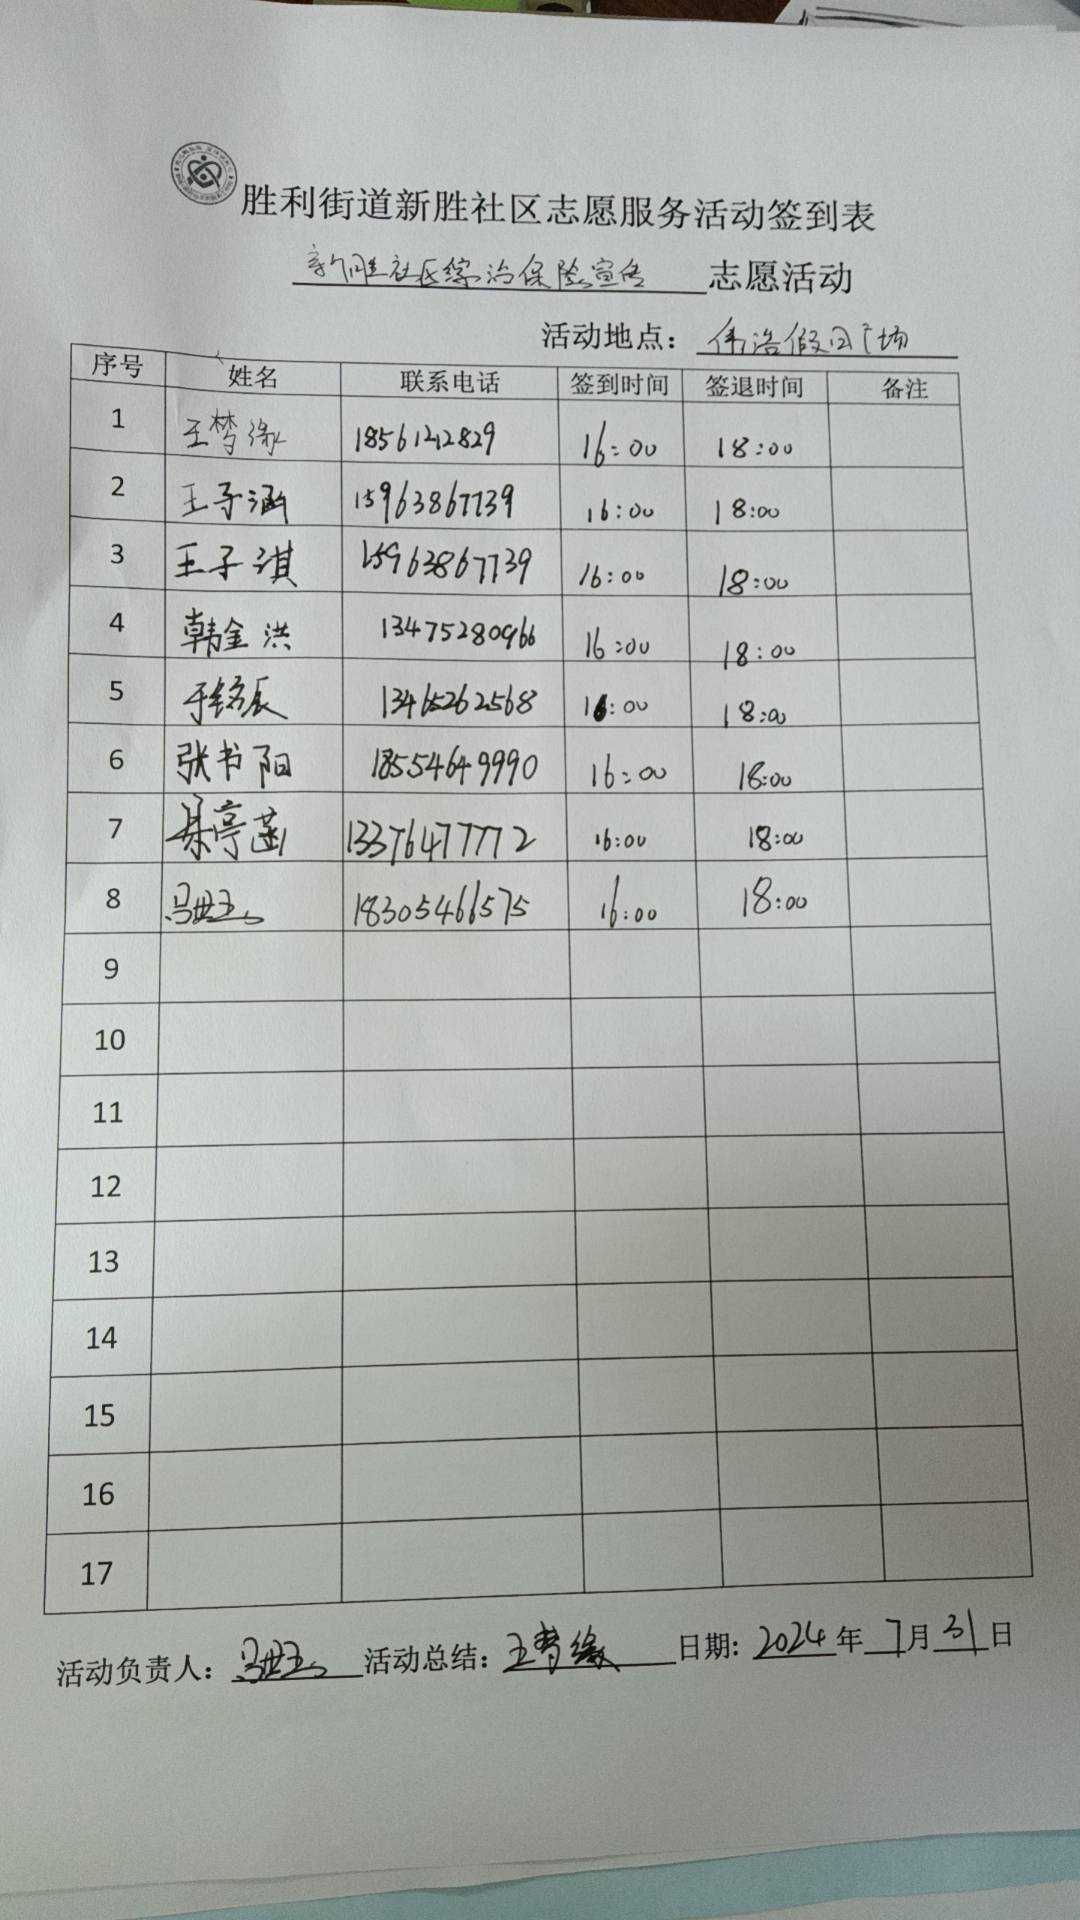 胜利街道新胜社区志愿服务活动签到表
新胜社区综治保险宣传 志愿活动
活动地点: 伟浩假日广场
序号 姓名 联系电话 签到时间 签退时间 备注
1 王梦缘 18561212829 16:00 18:00
2 王子涵 15963867739 16:00 18:00
3 王子淇 15963867739 16:00 18:00
4 韩金洪 13475280966 16:00 18:00
5 于铭辰 13465262568 16:00 18:00
6 张书阳 18554649990 16:00 18:00
7 梁亭菡 13376477772 16:00 18:00
8 18305466575 16:00 18:00
9
10
11
12
13
14
15
16
17
活动负责人: 活动总结: 王梦缘 日期: 2024年7月31日